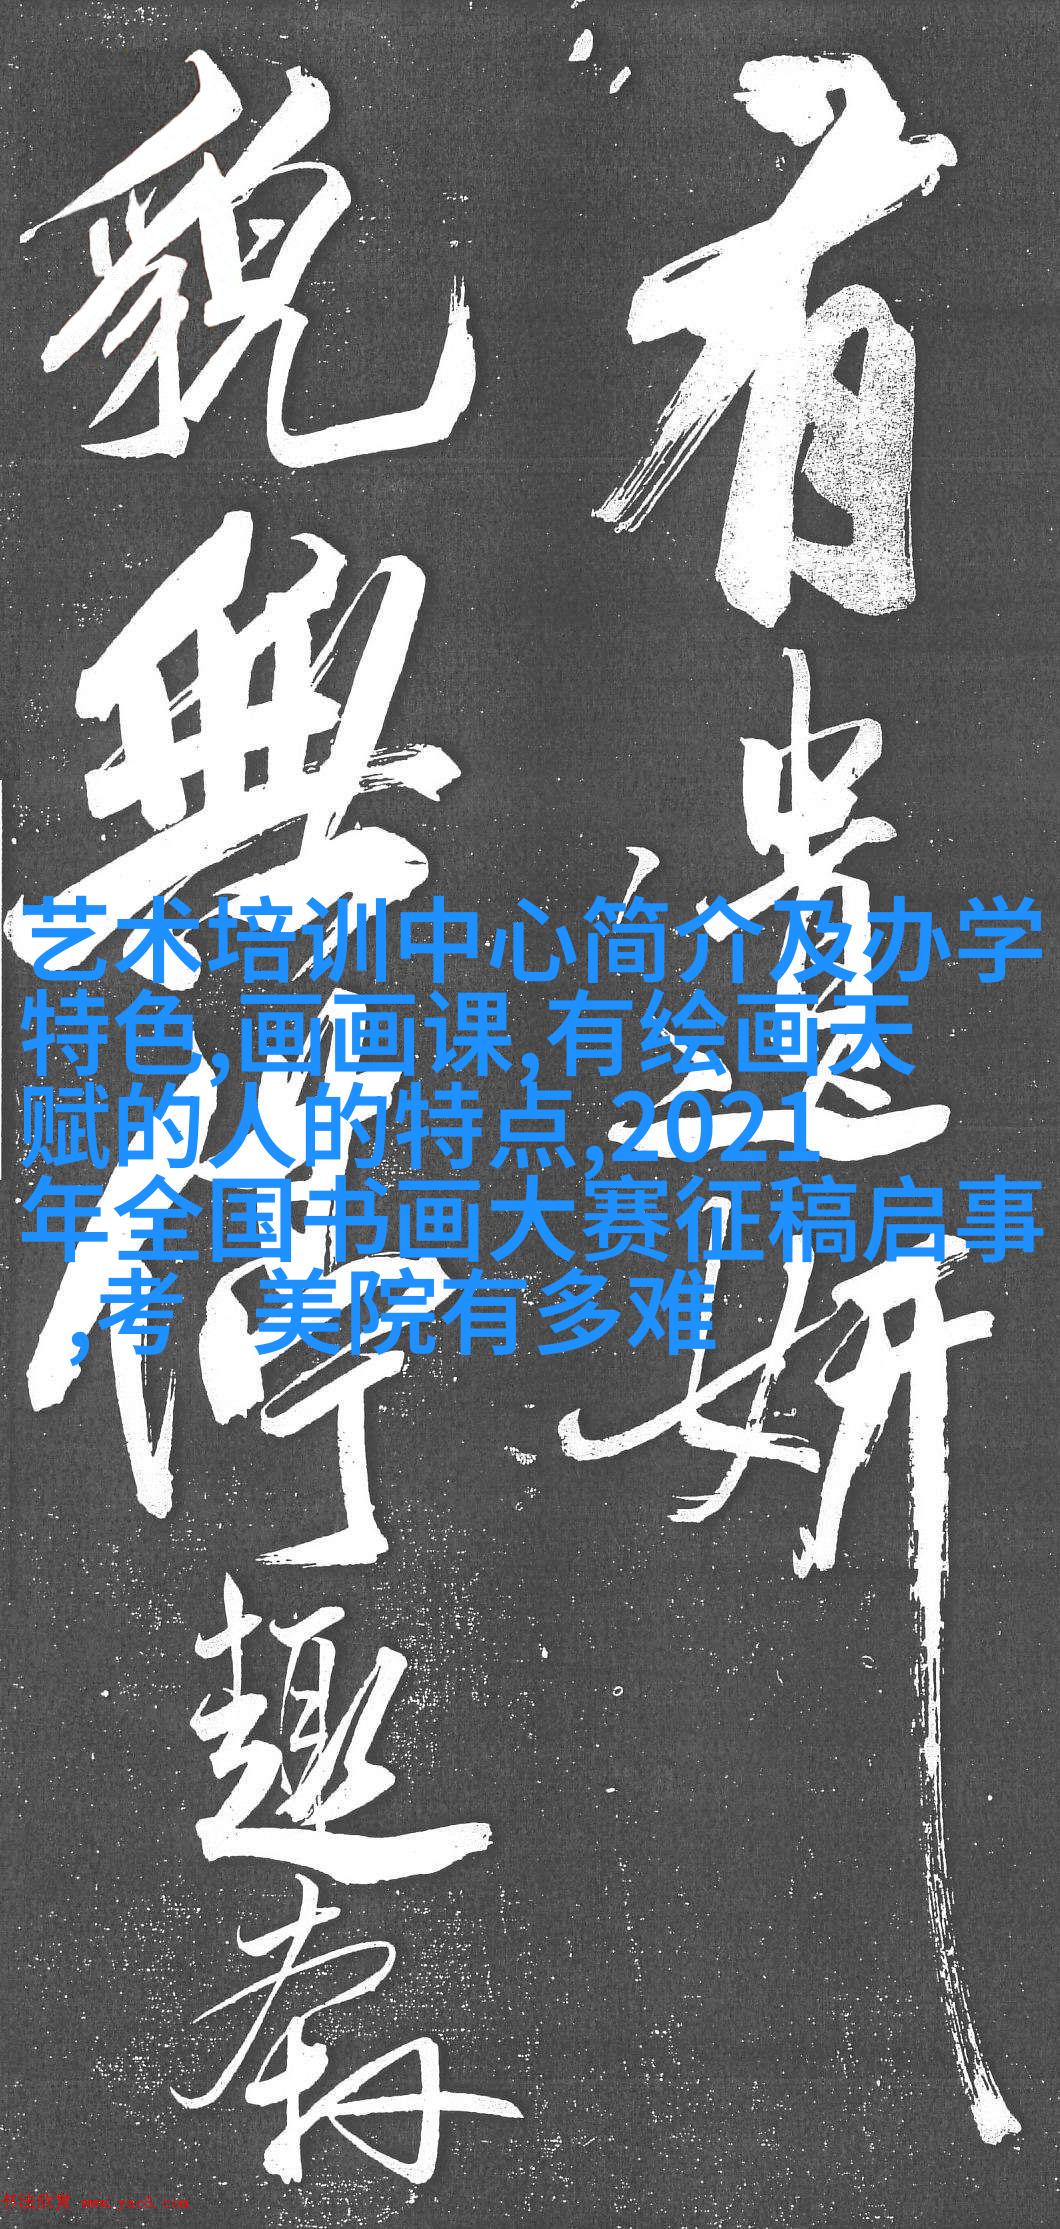 有遺妍
貌無停趣奔
艺术培训中心简介及办学
特色,画画课,有绘画天
赋的人的特点,2021
年全国书画大赛征稿启事
,考 美院有多难
书法欣赏 www.yac8.com